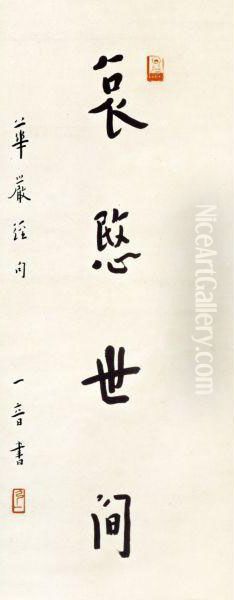 哀愍世間
華嚴經句
一音書
NiceArtGallery.com